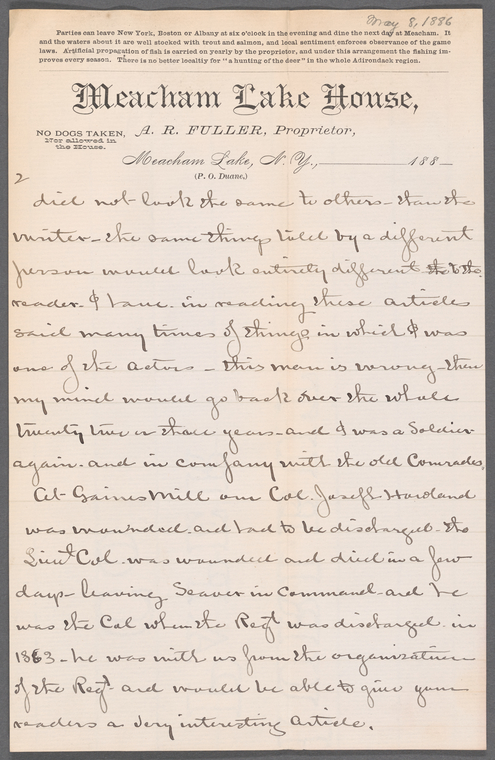 May 8, 1886
Parties can leave New York, Boston or Albany at six o'clock in the evening and dine the next day at Meacham. It
and the waters about it are well stocked with trout and salmon, and local sentiment enforces observance of the game
laws. Artificial propagation of fish is carried on yearly by the proprietor, and under this arrangement the fishing im-
proves every season. There is no better locality for "a hunting of the deer" in the whole Adirondack region.
Meacham Lake House,
NO DOGS TAKEN,
Nor allowed in
the House.
A. R. FULLER, Proprietor,
Meacham Lake, N. Y., 188
(P. O. Duane.)
2
did not look the same to others – than the
writer – the same things told by a different
person would look entirely different to the
reader. & I have in reading these articles
said many times of things in which I was
one of the actors – this man is wrong – then
my mind would go back over the whole
twenty two or three years – and I was a Soldier
again. and in company with the old Comrades.
At Gaines Mill our Col. Joseph Howland
was wounded and had to be discharged – the
Lieut Col. was wounded and died in a few
days – leaving Seaver in Command and he
was the Col when the Regt was discharged in
1863 – he was with us from the organization
of the Regt – and would be able to give your
readers a very interesting article.